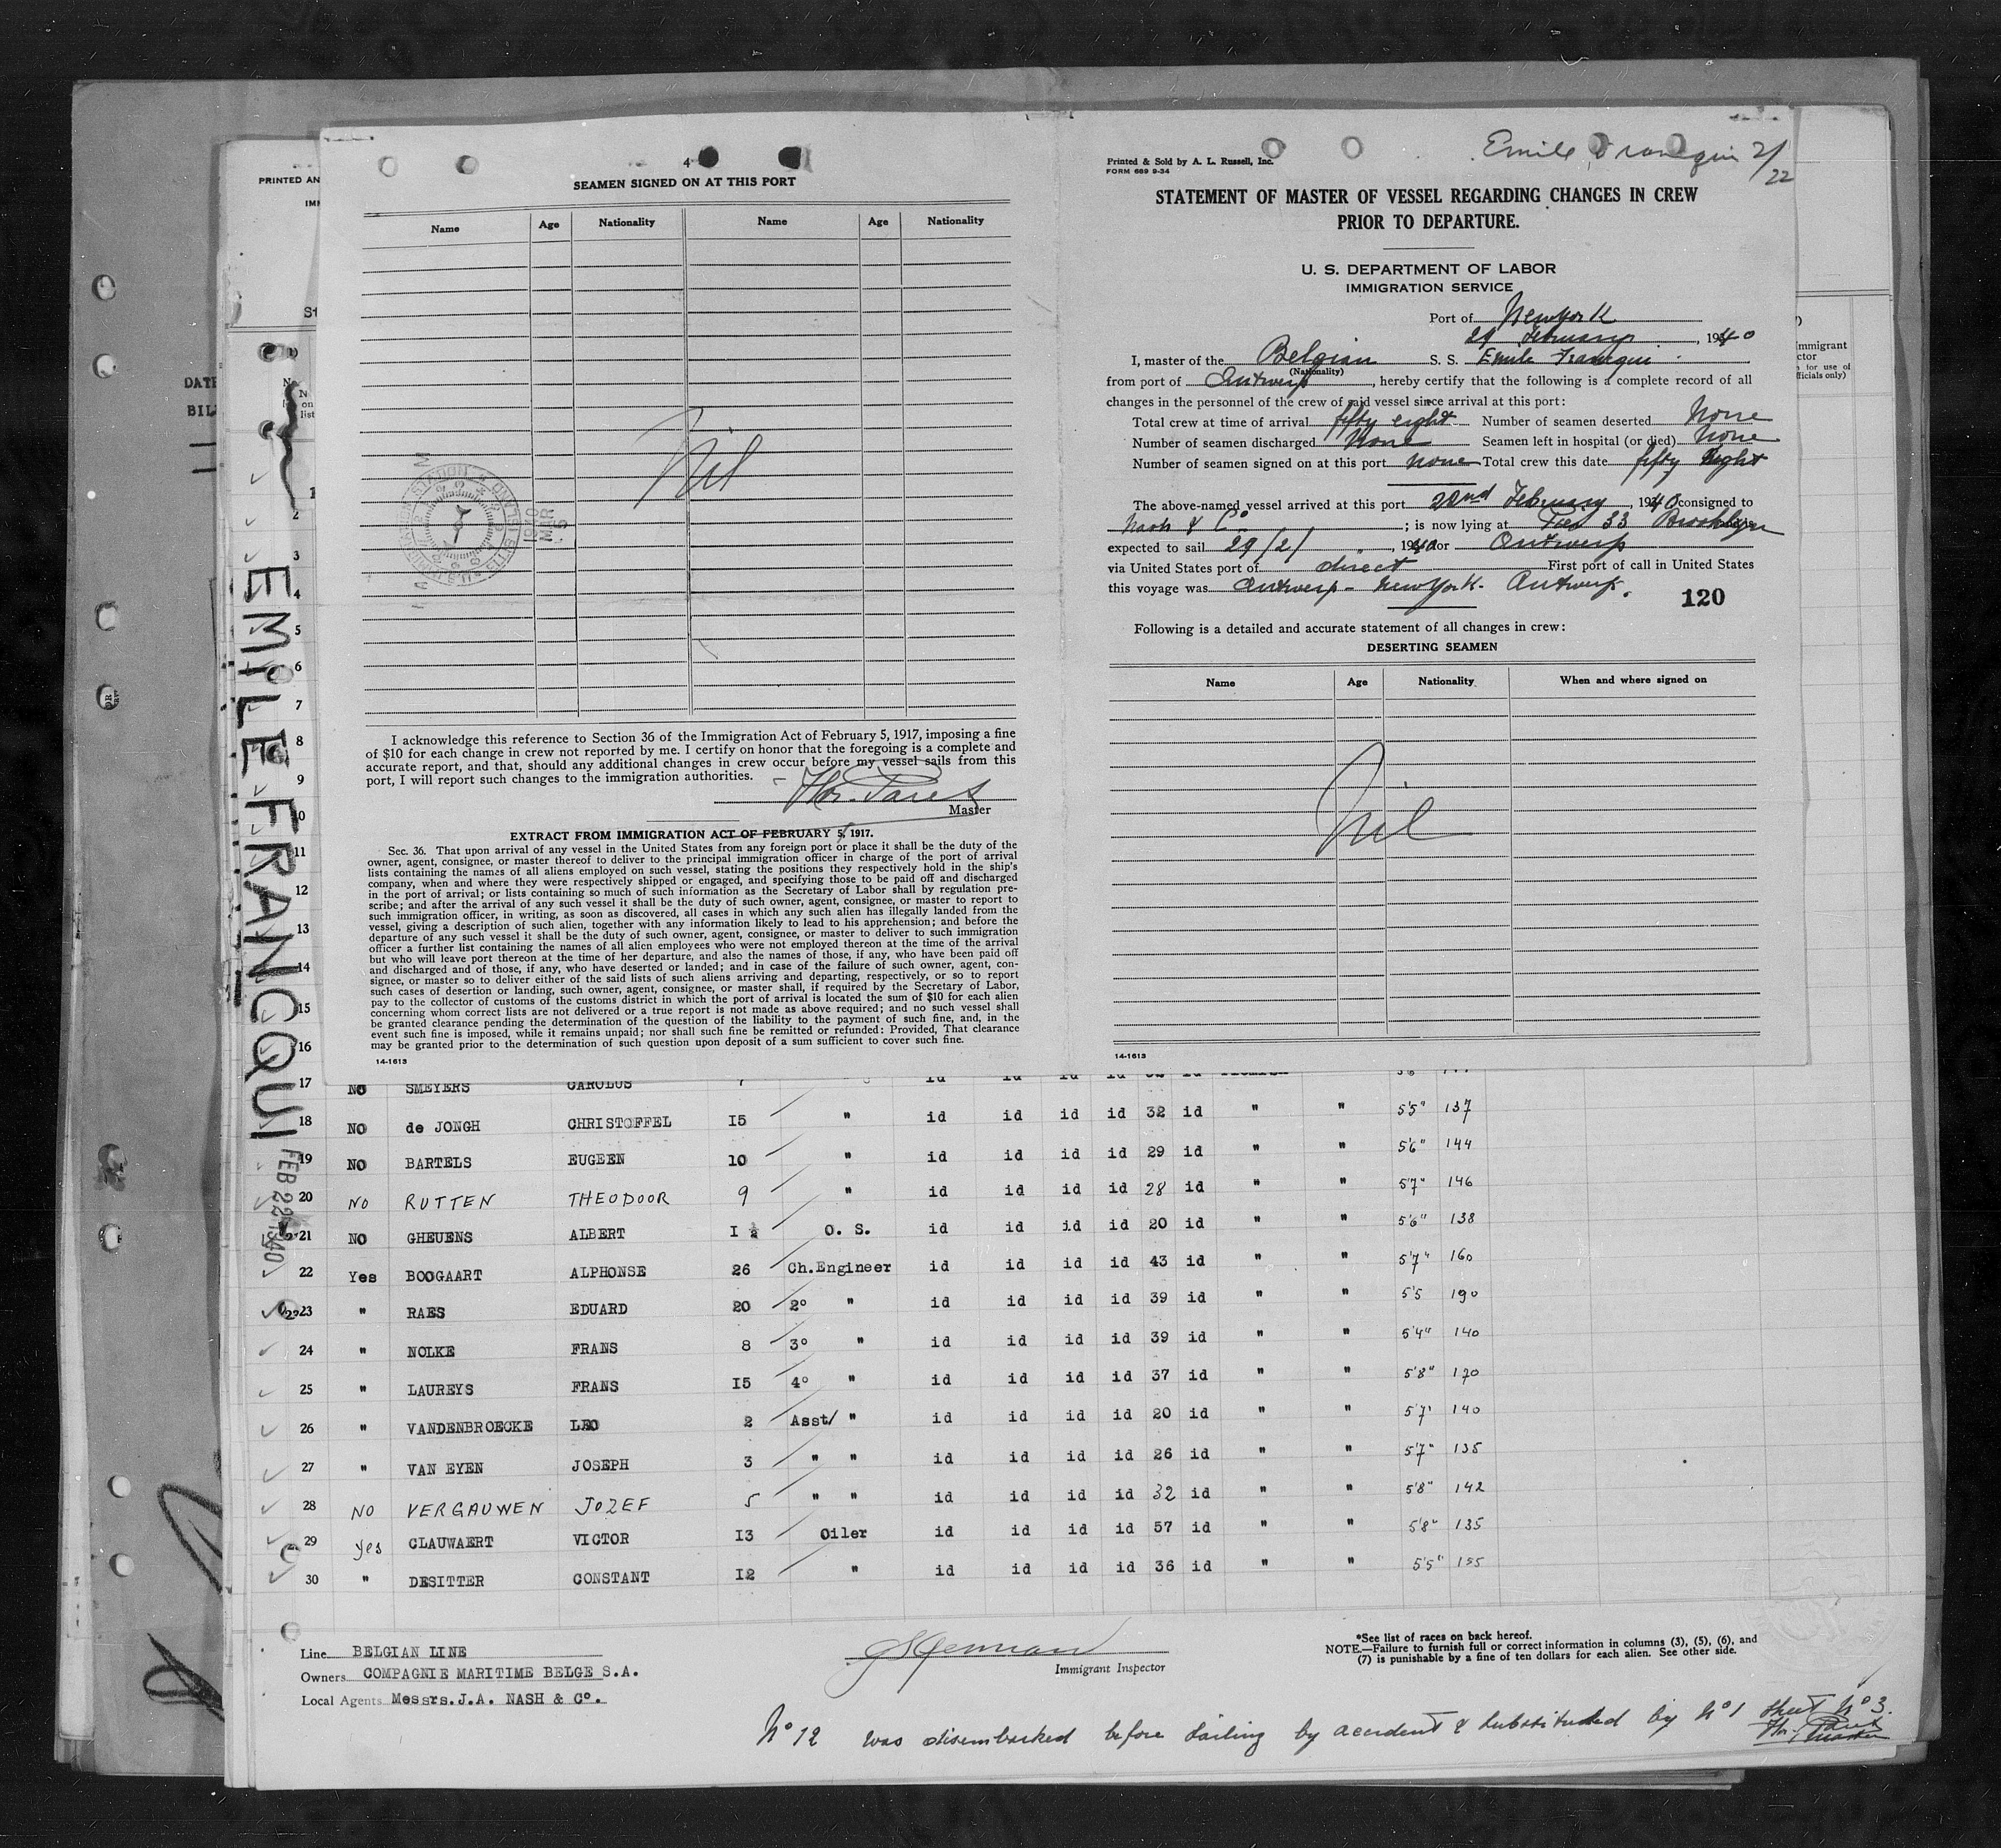 4
SEAMEN SIGNED ON AT THIS PORT
Name Age Nationality Name Age Nationality
Nil
I acknowledge this reference to Section 36 of the Immigration Act of February 5, 1917, imposing a fine
of $10 for each change in crew not reported by me. I certify on honor that the foregoing is a complete and
accurate report, and that, should any additional changes in crew occur before my vessel sails from this
port, I will report such changes to the immigration authorities.
Master
EXTRACT FROM IMMIGRATION ACT OF FEBRUARY 5, 1917.
Sec. 36. That upon arrival of any vessel in the United States from any foreign port or place it shall be the duty of the
owner, agent, consignee, or master thereof to deliver to the principal immigration officer in charge of the port of arrival
lists containing the names of all aliens employed on such vessel, stating the positions they respectively hold in the ship's
company, when and where they were respectively shipped or engaged, and specifying those to be paid off and discharged
in the port of arrival; or lists containing so much of such information as the Secretary of Labor shall by regulation pre-
scribe; and after the arrival of any such vessel it shall be the duty of such owner, agent, consignee, or master to report to
such immigration officer, in writing, as soon as discovered, all cases in which any such alien has illegally landed from the
vessel, giving a description of such alien, together with any information likely to lead to his apprehension; and before the
departure of any such vessel it shall be the duty of such owner, agent, consignee, or master to deliver to such immigration
officer a further list containing the names of all alien employees who were not employed thereon at the time of the arrival
but who will leave port thereon at the time of her departure, and also the names of those, if any, who have been paid off
and discharged and of those, if any, who have deserted or landed; and in case of the failure of such owner, agent, con-
signee, or master so to deliver either of the said lists of such aliens arriving and departing, respectively, or so to report
such cases of desertion or landing, such owner, agent, consignee, or master shall, if required by the Secretary of Labor,
pay to the collector of customs of the customs district in which the port of arrival is located the sum of $10 for each alien
concerning whom correct lists are not delivered or a true report is not made as above required; and no such vessel shall
be granted clearance pending the determination of the question of the liability to the payment of such fine, and, in the
event such fine is imposed, while it remains unpaid; nor shall such fine be remitted or refunded: Provided, That clearance
may be granted prior to the determination of such question upon deposit of a sum sufficient to cover such fine.
14-1613
Emile Francqui 2/22
Printed & Sold by A. L. Russell, Inc.
FORM 689 9-34
STATEMENT OF MASTER OF VESSEL REGARDING CHANGES IN CREW
PRIOR TO DEPARTURE.
U. S. DEPARTMENT OF LABOR
IMMIGRATION SERVICE
Port of New York
29 February, 1940
I, master of the Belgian S. S. Emile Francqui
(Nationality)
from port of Antwerp, hereby certify that the following is a complete record of all
changes in the personnel of the crew of said vessel since arrival at this port:
Total crew at time of arrival fifty eight Number of seamen deserted None
Number of seamen discharged None Seamen left in hospital (or died) None
Number of seamen signed on at this port none Total crew this date fifty eight
The above-named vessel arrived at this port 22nd February, 1940 consigned to
Nash & Co; is now lying at Pier 33 Brooklyn
expected to sail 29/2/, 1940 for Antwerp
via United States port of direct First port of call in United States
this voyage was Antwerp - New York - Antwerp.
120
Following is a detailed and accurate statement of all changes in crew:
DESERTING SEAMEN
Name Age Nationality When and where signed on
Nil
14-1613
EMILE FRANCQUI
FEB 22 1940
PRINTED AN
DATE
BIL
1
2
3
4
5
6
7
8
9
10
11
12
13
14
15
16
17 NO SMEYERS CAROLUS
18 NO de JONGH CHRISTOFFEL 15 " id id id id 32 id " " 5'5" 137
19 NO BARTELS EUGEEN 10 " id id id id 29 id " " 5'6" 144
20 NO RUTTEN THEODOOR 9 " id id id id 28 id " " 5'7" 146
21 NO GHEUENS ALBERT 1 ½ O. S. id id id id 20 id " " 5'6" 138
22 Yes BOOGAART ALPHONSE 26 Ch.Engineer id id id id 43 id " " 5'7" 160
23 " RAES EDUARD 20 2º " id id id id 39 id " " 5'5 190
24 " NOLKE FRANS 8 3º " id id id id 39 id " " 5'4" 140
25 " LAUREYS FRANS 15 4º " id id id id 37 id " " 5'8" 170
26 " VANDENBROECKE LEO 2 Asst/ " id id id id 20 id " " 5'7' 140
27 " VAN EYEN JOSEPH 3 " " id id id id 26 id " " 5'7" 135
28 NO VERGAUWEN JOZEF 5 " " id id id id 32 id " " 5'8" 142
29 yes CLAUWAERT VICTOR 13 Oiler id id id id 57 id " " 5'8" 135
30 " DESITTER CONSTANT 12 " id id id id 36 id " " 5'5" 155
Line BELGIAN LINE
Owners COMPAGNIE MARITIME BELGE S.A.
Local Agents Messrs.J.A. NASH & Co.
Immigrant Inspector
*See list of races on back hereof.
NOTE.—Failure to furnish full or correct information in columns (3), (5), (6), and
(7) is punishable by a fine of ten dollars for each alien. See other side.
No 12 was disembarked before sailing by accident & substituted by No 1 sheet No 3.
Master